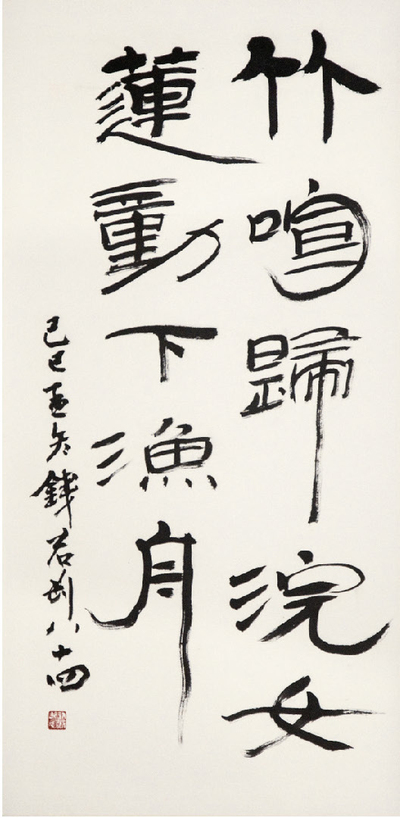 竹喧歸浣女
蓮動下漁舟
己巳孟冬錢君匋八十四